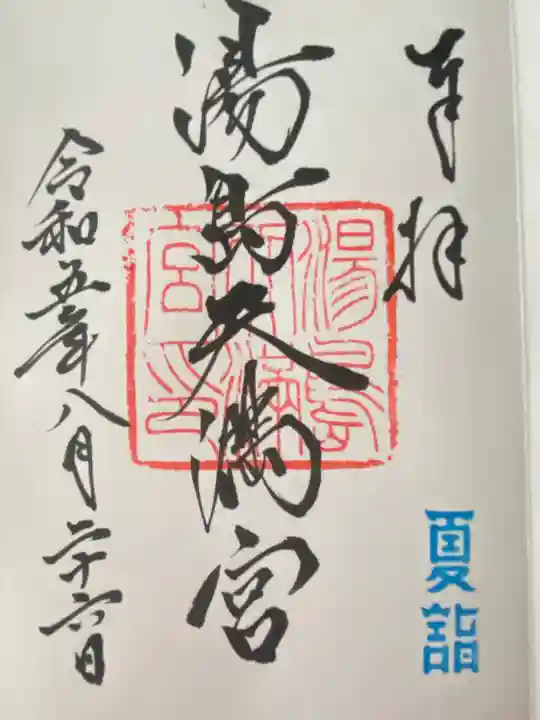 奉拝
夏詣
湯島天満宮
湯島天満宮印
令和五年八月二十六日